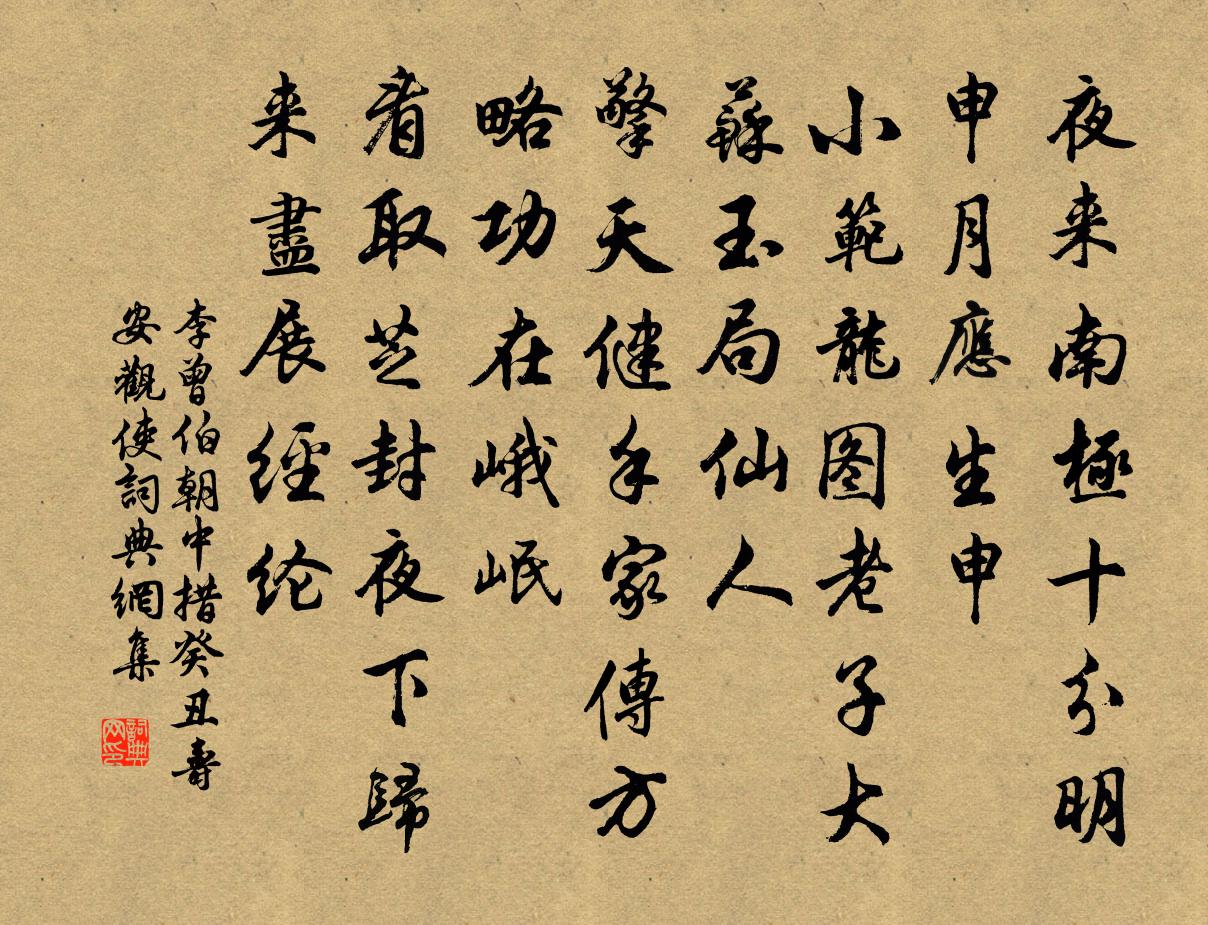 夜来南極十分明
申月應生申
小範龍图老子大
蘇玉局仙人
擎天健手家傳方
略功在峨岷
看取芝封夜下歸
来盡展經纶
李曾伯朝中措癸丑壽
安觀使詞典網集
詞典网印